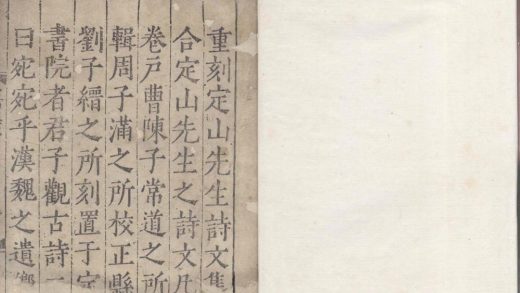 重刻定山先生詩文集
合定山先生之詩文凡
卷戸曹陳子常道之所
輯周子滿之所校正縣
劉子縉之所刻置于定
書院者君子觀古詩
曰宛宛乎漢魏之遺